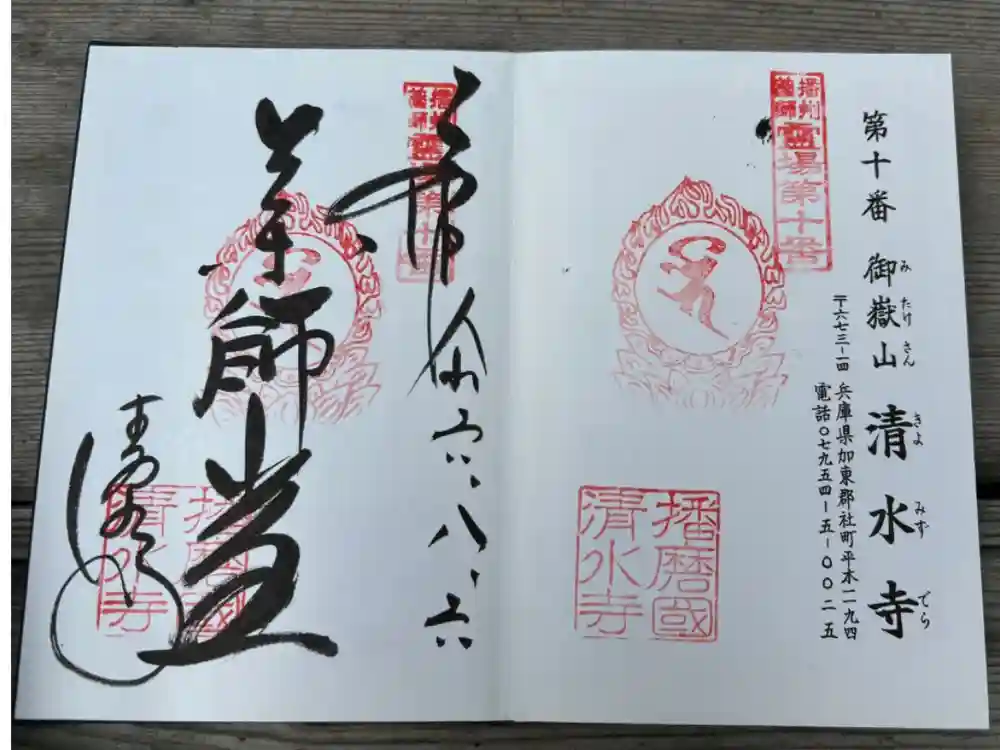 第十番 御嶽山 清水寺
みたけさん きよみずでら
〒六七三−一四 兵庫県加東郡社町平木一一九四
電話〇七九五四−五−〇〇二五
播州薬師霊場第十番
播磨國
清水寺
播州薬師霊場第十番
奉
六・八・六
薬師堂
清水寺
播磨國
清水寺